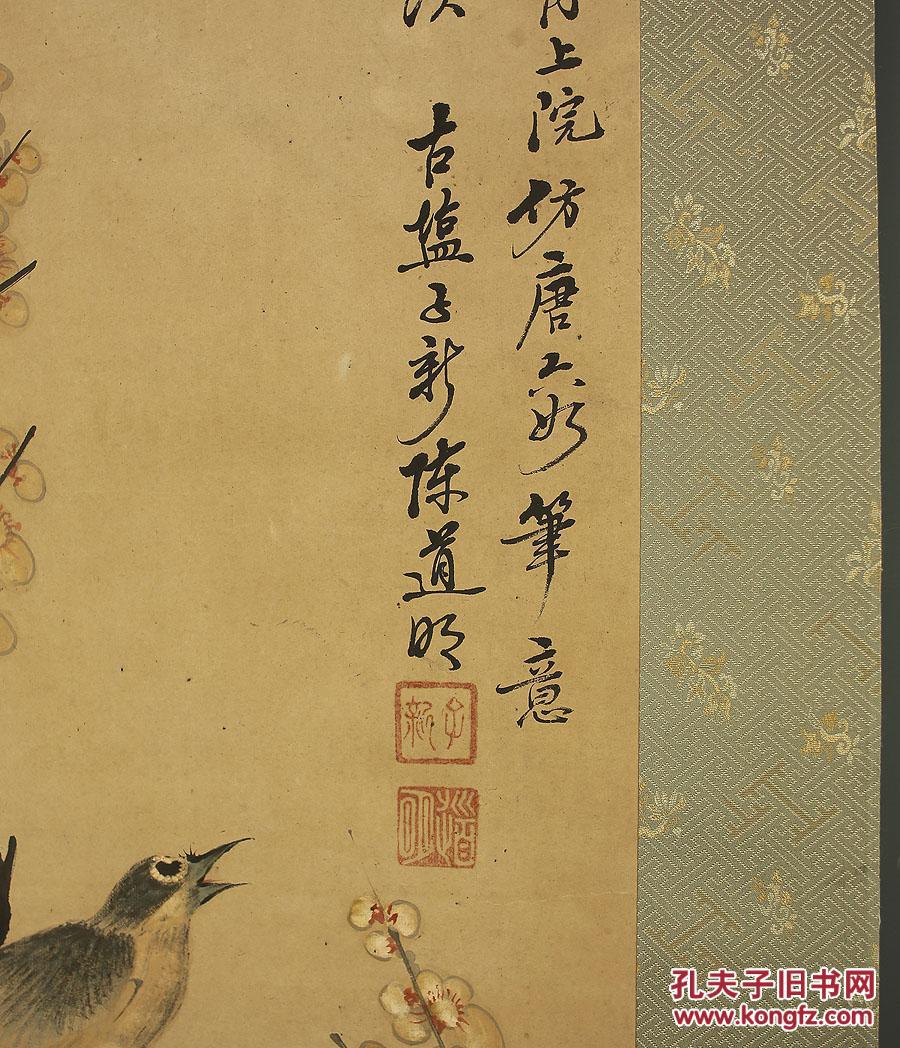 上院仿唐六如筆意
次
古塩子新陈道明
子新
道明
孔夫子旧书网
www.kongfz.com